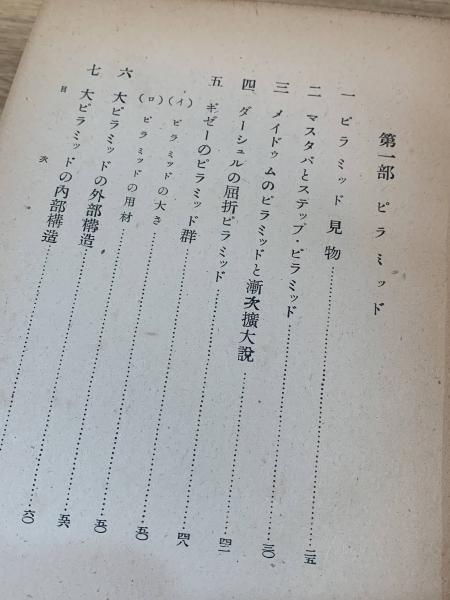 第一部 ピラミッド
一 ピラミッド見物
二 マスタバとステップ・ピラミッド……二五
三 メイドゥムのピラミッドと漸次擴大說……三〇
四 ダーシュルの屈折ピラミッド……四二
五 ギゼーのピラミッド群……四八
(イ) ピラミッドの大さ……五〇
(ロ) ピラミッドの用材……五〇
六 大ピラミッドの外部構造……五六
七 大ピラミッドの內部構造……六〇
目次